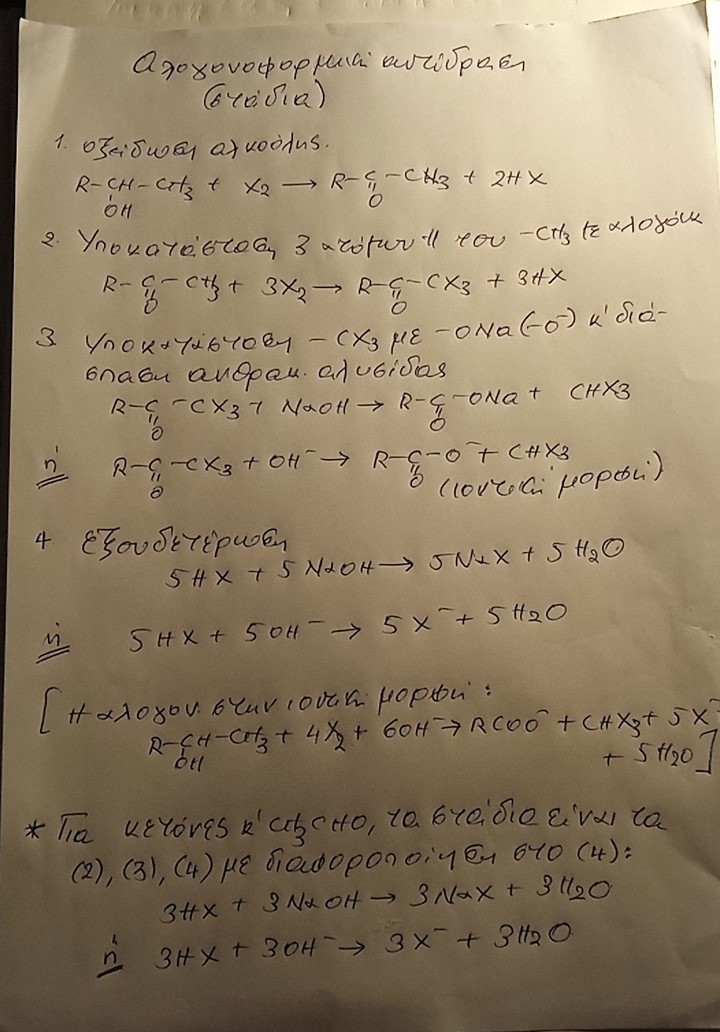 Αλογονοφορμική αντίδραση
(στάδια)
1. οξείδωση αλκοόλης.
R-CH-CH3 + X2 → R-C-CH3 + 2HX
OH O
2. Υποκατάσταση 3 ατόμων H του -CH3 με αλογόνα
R-C-CH3 + 3X2 → R-C-CX3 + 3HX
O O
3. Υποκατάσταση -CX3 με -ONa(-O⁻) κ' διά-
σπαση ανθρακ. αλυσίδας
R-C-CX3 + NaOH → R-C-ONa + CHX3
O O
ή R-C-CX3 + OH⁻ → R-C-O⁻ + CHX3
O O (ιοντική μορφή)
4 εξουδετέρωση
5HX + 5NaOH → 5NaX + 5H2O
ή 5HX + 5OH⁻ → 5X⁻ + 5H2O
[Η αλογον. στην ιοντική μορφή:
R-CH-CH3 + 4X2 + 6OH⁻ → RCOO⁻ + CHX3 + 5X⁻
OH + 5H2O]
* Για κετόνες κ' CH3CHO, τα στάδια είναι τα
(2), (3), (4) με διαφοροποίηση στο (4):
3HX + 3NaOH → 3NaX + 3H2O
ή 3HX + 3OH⁻ → 3X⁻ + 3H2O